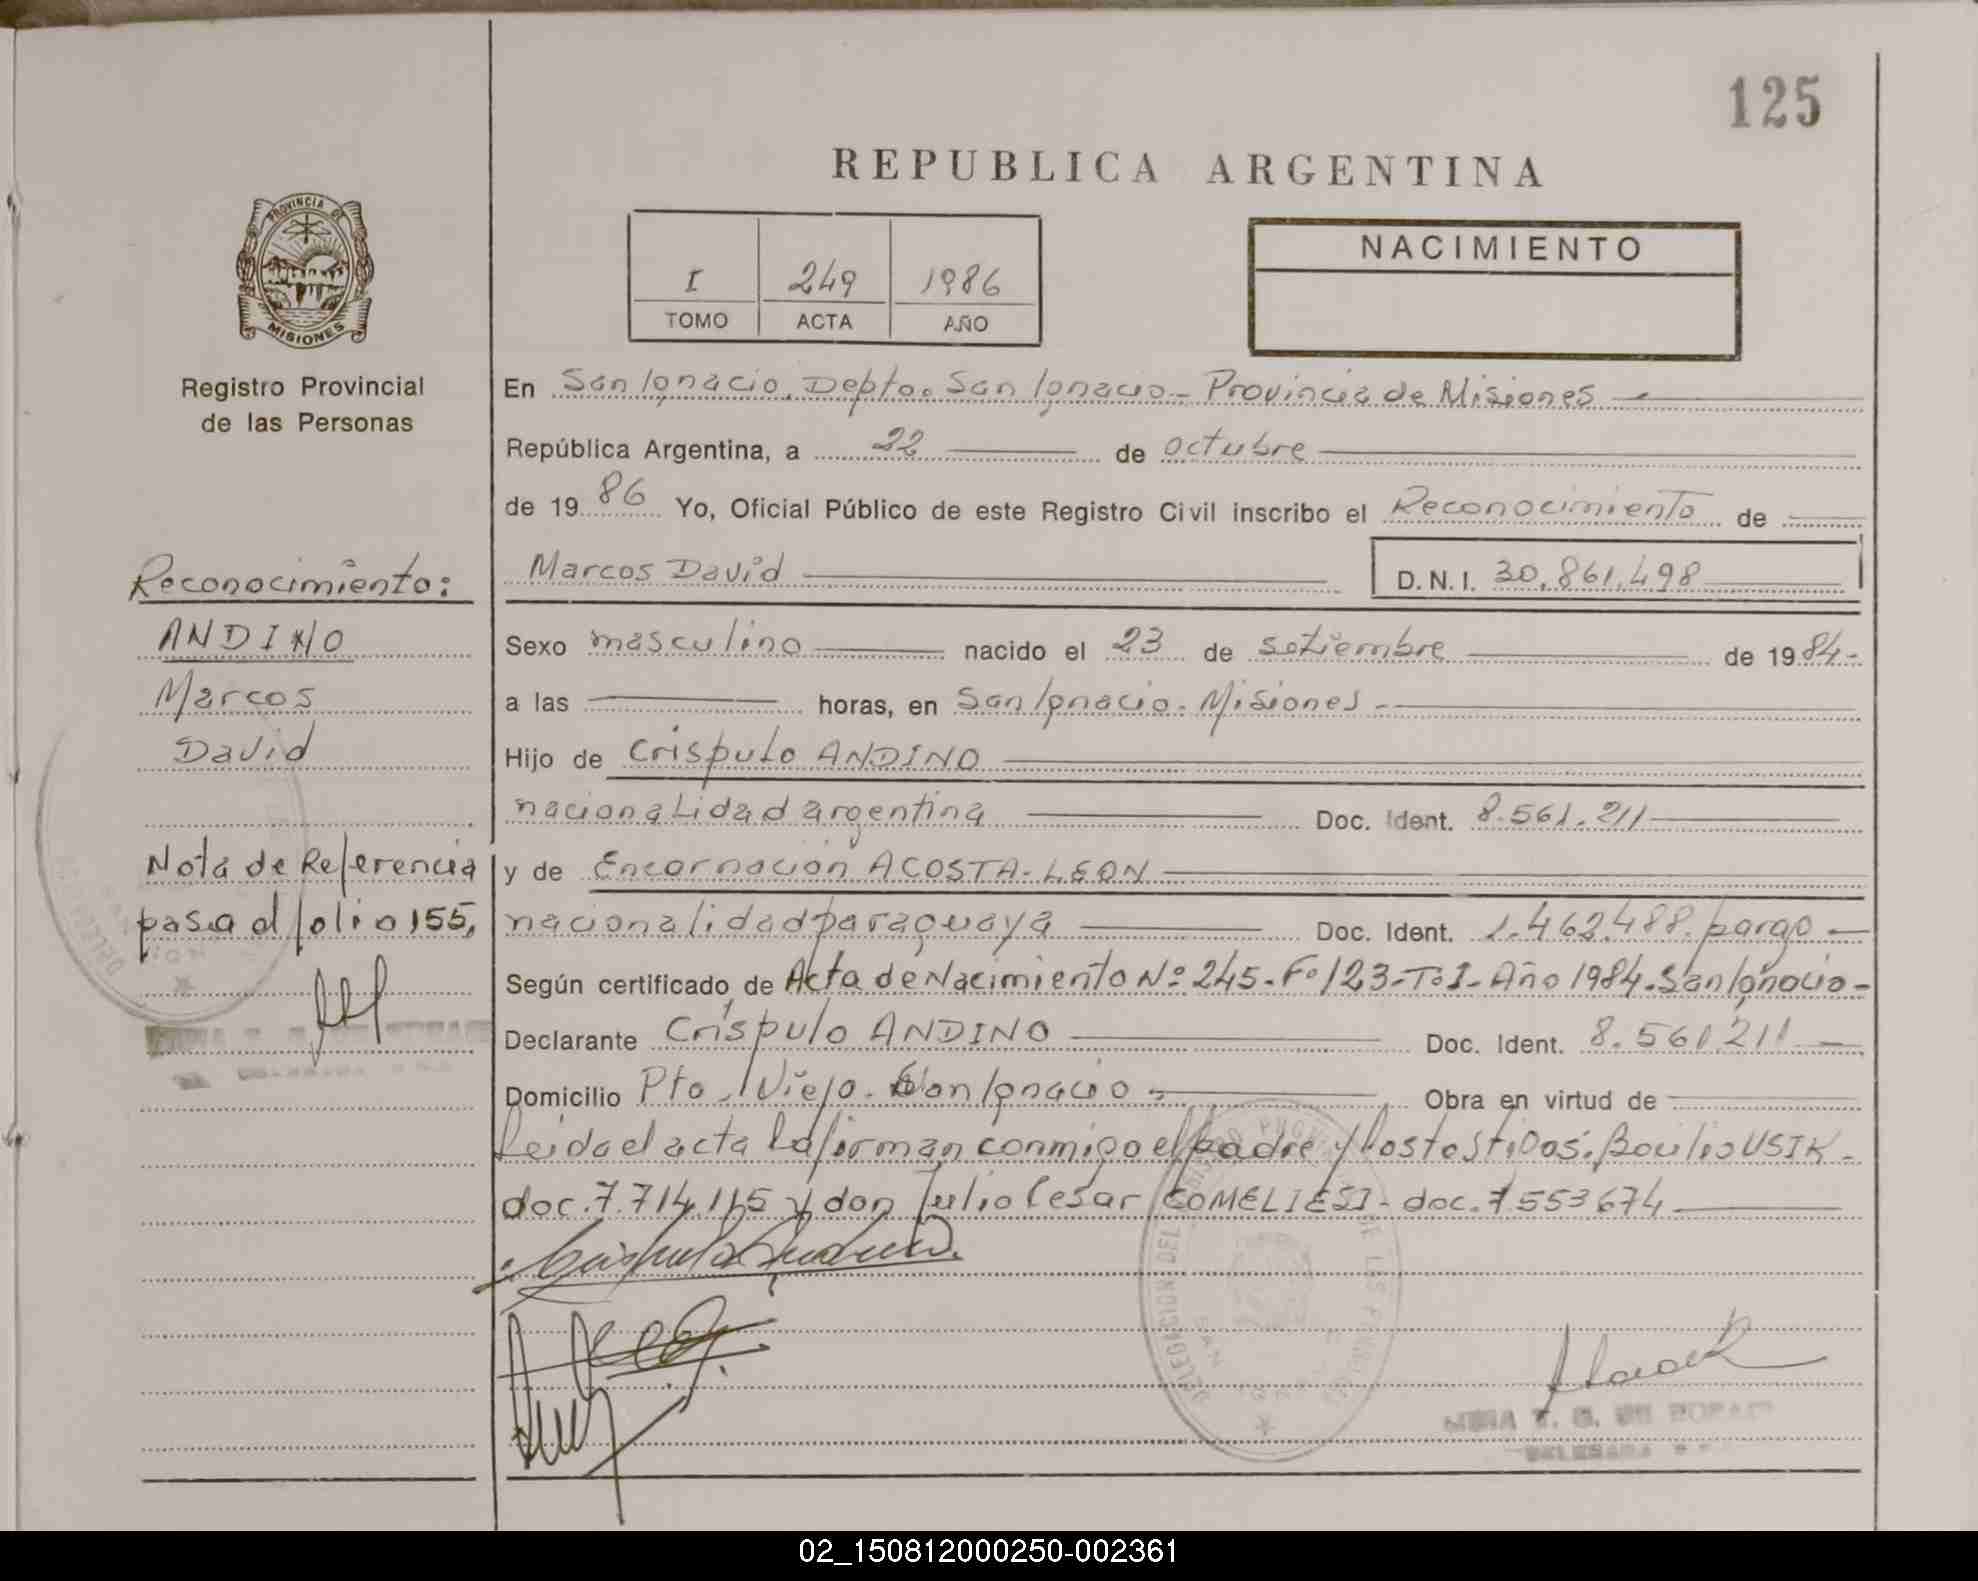 125
REPUBLICA ARGENTINA
I 249 1986
TOMO ACTA AÑO
NACIMIENTO
PROVINCIA DE
MISIONES
Registro Provincial
de las Personas
En San Ignacio, Depto. San Ignacio - Provincia de Misiones
República Argentina, a 22 de octubre
de 1986 Yo, Oficial Público de este Registro Civil inscribo el Reconocimiento de
Marcos David D.N.I. 30.861.498
Sexo masculino nacido el 23 de setiembre de 1984-
a las horas, en San Ignacio - Misiones
Hijo de Crispulo ANDINO
nacionalidad argentina Doc. Ident. 8.561.211
y de Encarnación ACOSTA-LEON
nacionalidad paraguaya Doc. Ident. 1.462.488. parago
Según certificado de Acta de Nacimiento Nº 245-Fº 123-Tº I-Año 1984-San Ignacio-
Declarante Críspulo ANDINO Doc. Ident. 8.561.211
Domicilio Pto. Viejo - San Ignacio - Obra en virtud de
leida el acta la firman conmigo el padre y los testigos: USIK-
doc. 7.714.115 y don Julio Cesar COMELIESI - doc. 7553674
Reconocimiento:
ANDINO
Marcos
David
Nota de Referencia
pasa al folio 155,
DELEGACION DEL
SAN
DELEGADA
02_150812000250-002361